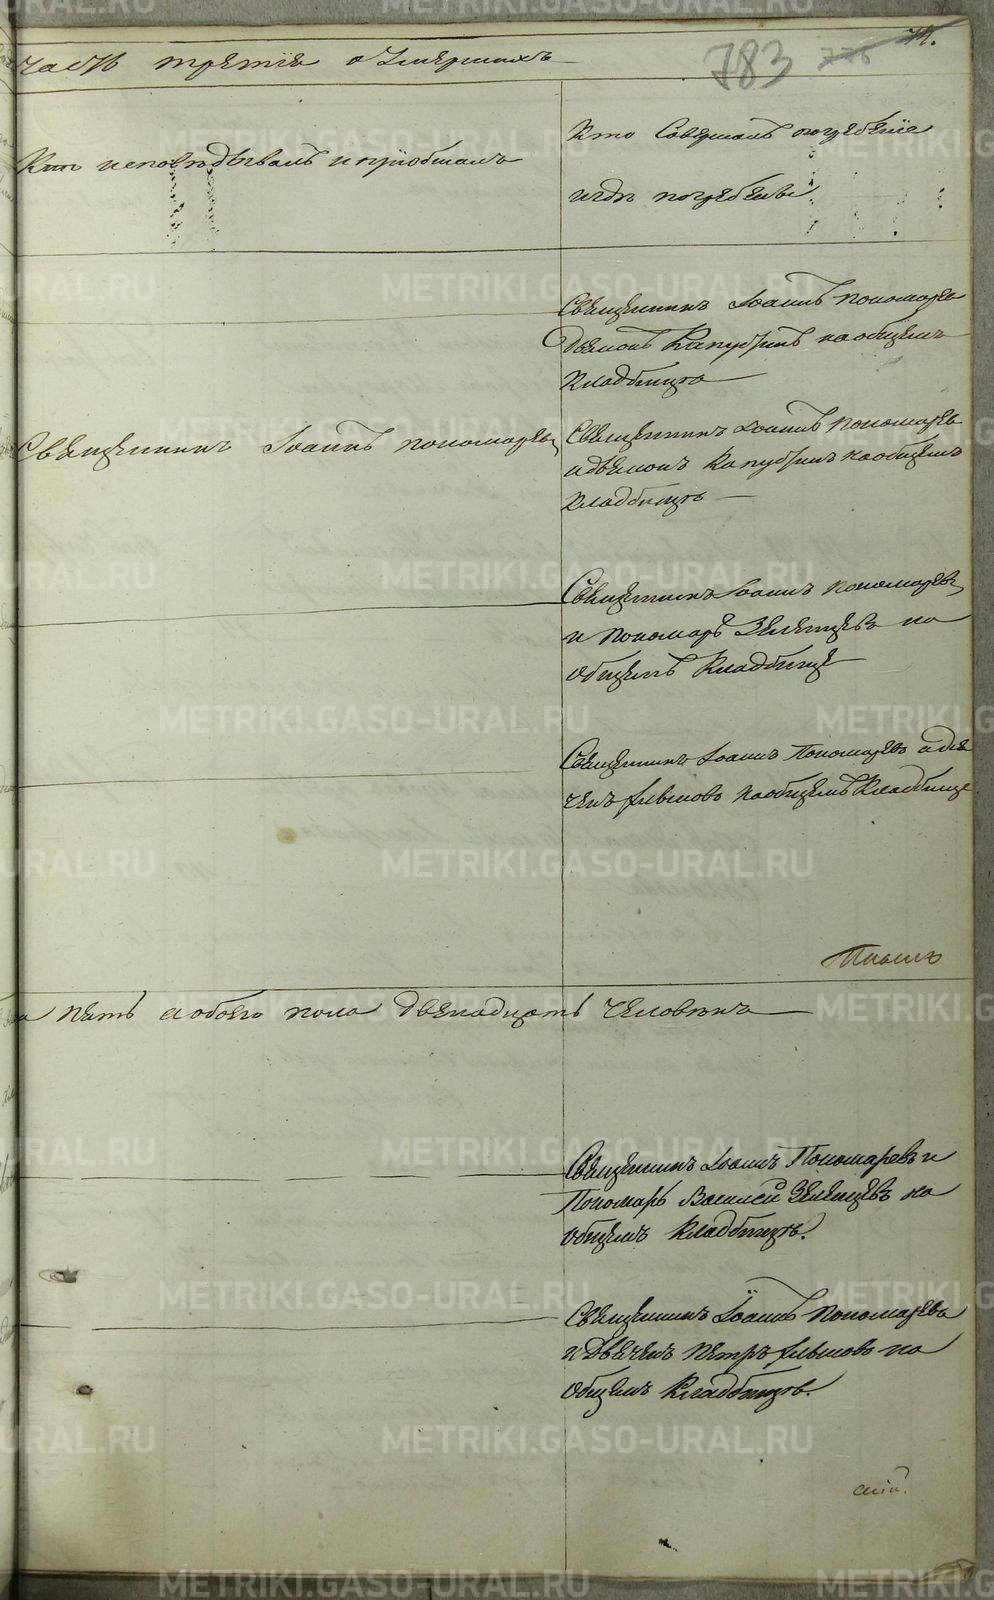 часть третіе о Умершихъ
783
Кто исповѣдывалъ и пріобщалъ
Кто Совершалъ погребеніе
и гдѣ погребены
Священникъ Іоаннъ Пономаревъ
на общемъ
Кладбище
Священникъ Іоаннъ Пономаревъ
Священникъ Іоаннъ Пономаревъ
на общемъ
Кладбищѣ
Священникъ Іоаннъ Пономаревъ
и Пономарь Зеленцевъ на
общемъ Кладбище
Священникъ Іоаннъ Пономаревъ и дья
чекъ на общемъ Кладбище
пять а обоего пола двенадцать человѣкъ
Священникъ Іоаннъ Пономаревъ и
Пономарь Василей Зеленцевъ на
общемъ Кладбищѣ.
Священникъ Іоаннъ Пономаревъ
и Дьячекъ Петръ на
общемъ Кладбищѣ.
METRIKI.GASO-URAL.RU